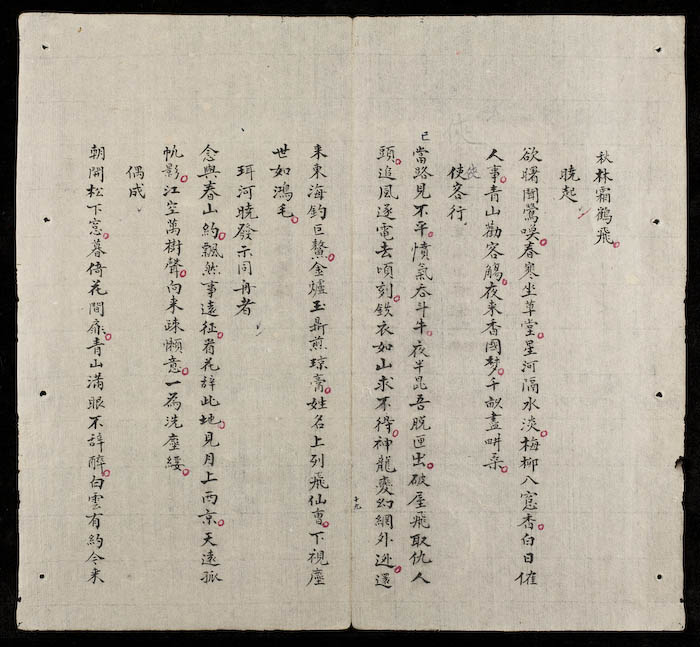 秋林霜鶴飛
曉起
欲曙聞鶯喚春寒坐草堂星河隔水淡梅柳入窓香白日催
人事青山勸客觴夜来香國夢千畝盡畊桑
使客行
俠
已當路見不平憤氣吞斗牛夜半昆吾脫匣出破屋飛取仇人
頭追風逐電去頃刻鉄衣如山求不得神龍變幻網外逊還
十九
来東海釣巨鰲金爐玉鼎煎琼膏姓名上列飛仙曺下視塵
世如鴻毛
珥河曉發示同舟者
念與春山約飄然事遠征看花辞此地見月上西京天遠孤
帆影江空萬樹聲向来疎懶意一為洗塵纓
偶成
朝開松下窓暮倚花間扉青山滿眼不辞醉白雲有約今来